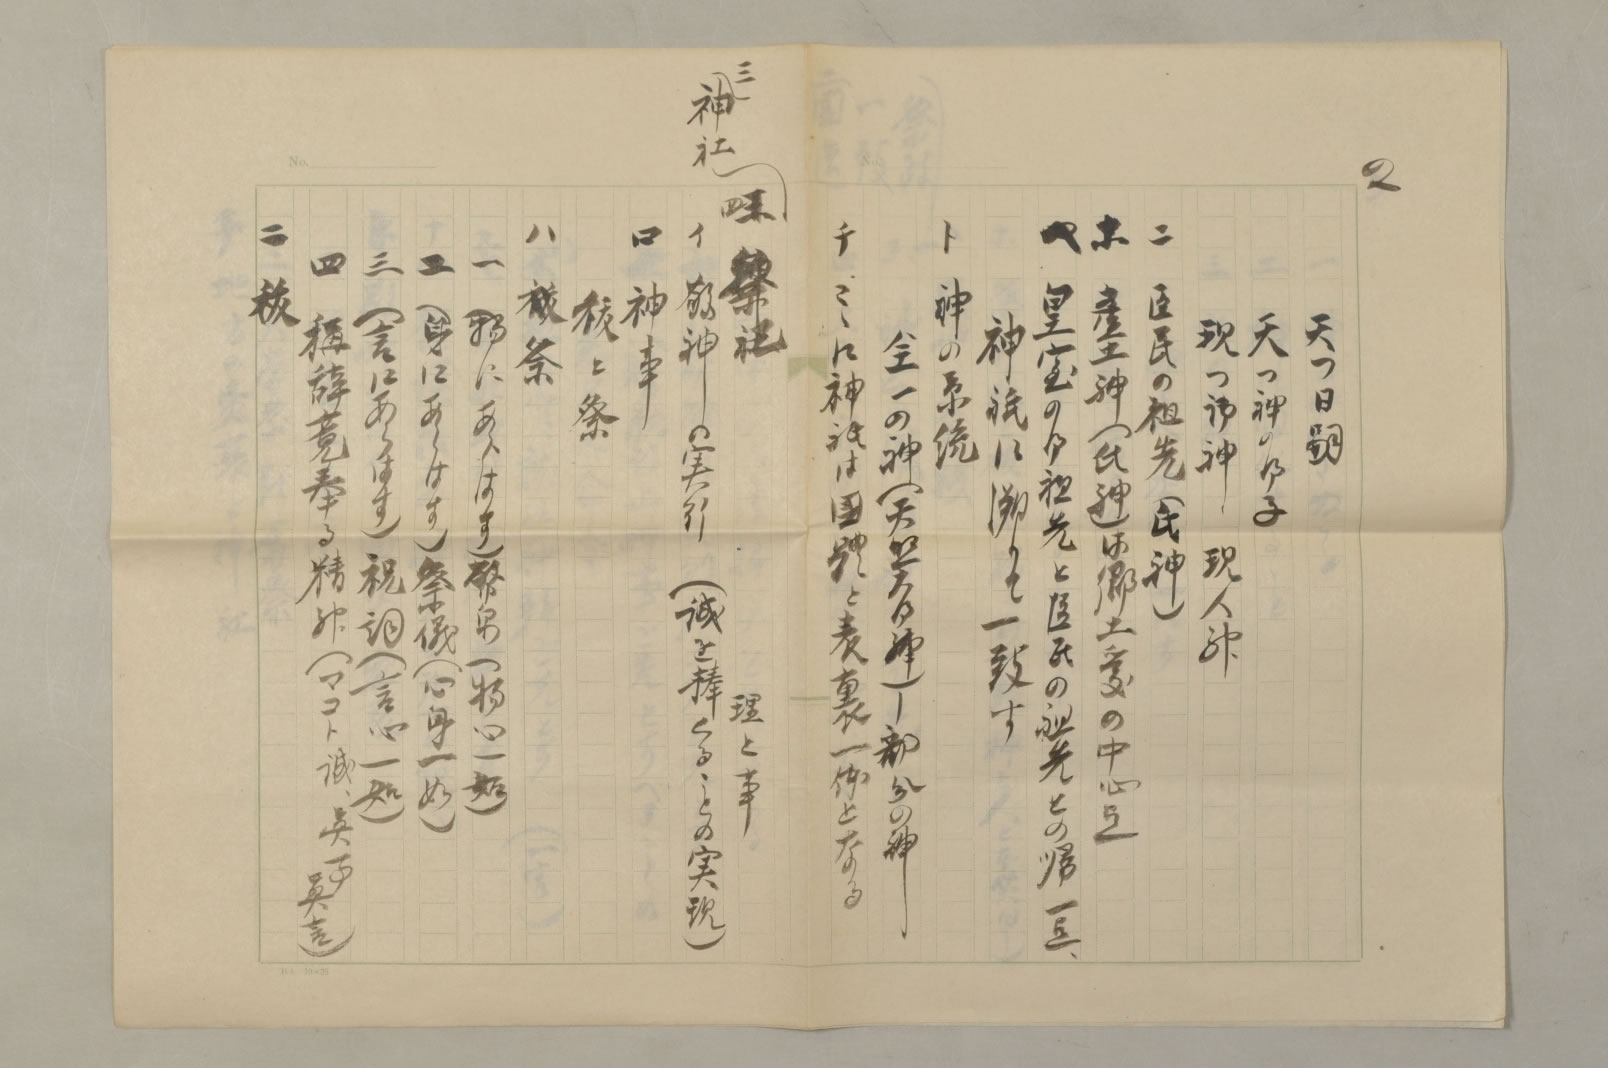 2
天つ日嗣
天つ神の御子
現つ御神 現人神
ニ 臣民の祖先(氏神)
ホ 産土神(氏神)は郷土愛の中心点
ヘ 皇室の御祖先と臣民の祖先との帰一点、
神祇に溯りて一致す
ト 神の系統
全一の神(天照大御神)―部分の神
チ こゝに神祇は国体と表裏一体となる
三 神社
四 祭祀
理と事
イ 敬神―の実行 (誠を捧くることの実現)
ロ 神事
祓と祭
ハ 祭
一 (物にあらはす)幣帛(物心一如)
二 (身にあらはす)祭儀(心身一如)
三 (言にあらはす)祝詞(言心一如)
四 称辞竟奉る精神(マコト 誠、真事 真言)
ニ 祓
No.
No.